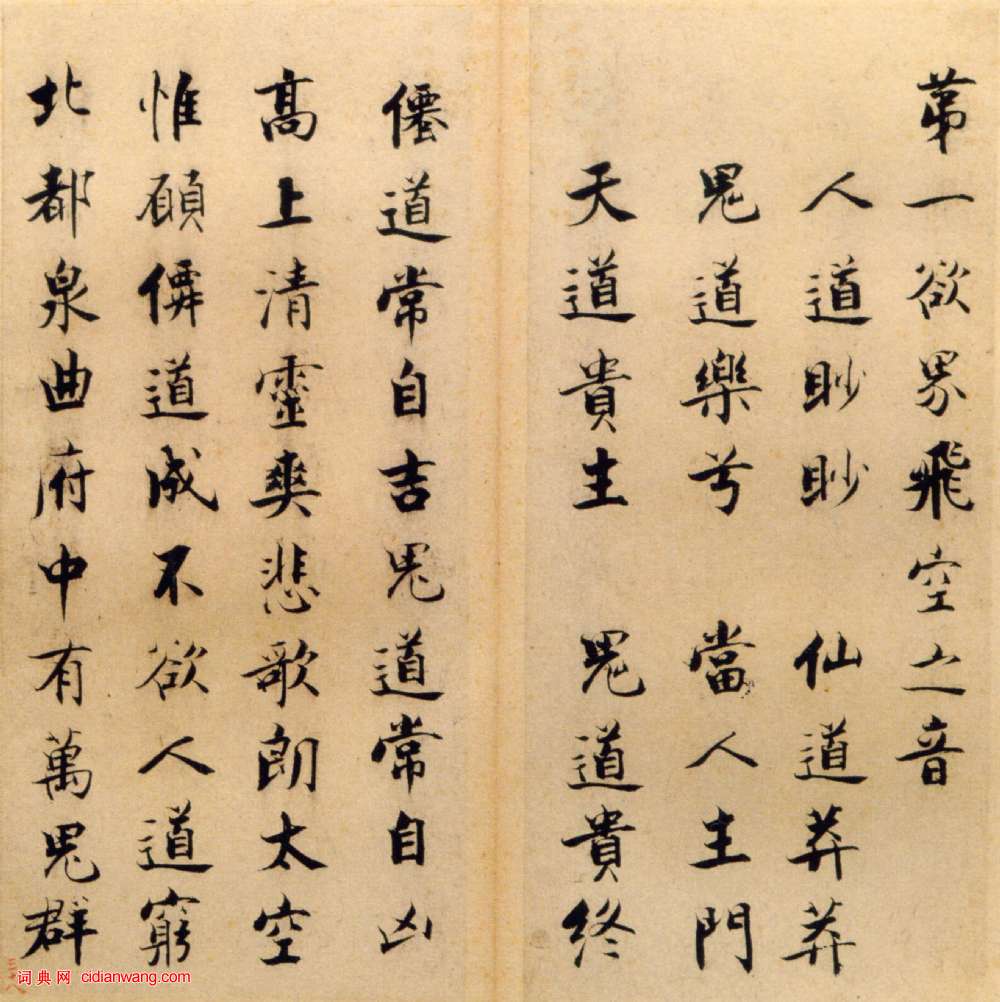 苐一欲界飛空之音
人道眇眇 仙道莽莽
鬼道樂兮 當人主門
天道貴生 鬼道貴終
僊道常自吉鬼道常自凶
髙上清靈爽悲歌朗太空
惟願僊道成不欲人道窮
北都泉曲府中有萬鬼群
词典网 cidianwang.com